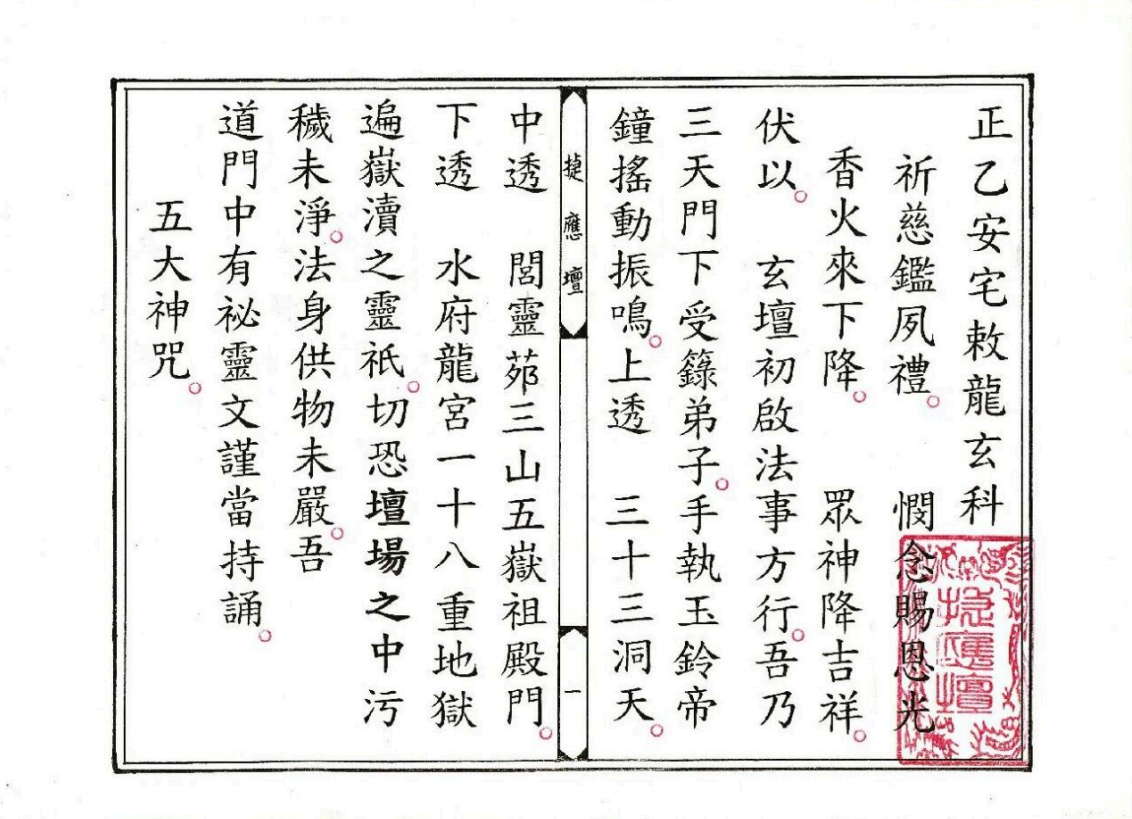 正乙安宅敕龍玄科
祈慈鑑夙禮。 憫念賜恩光
香火來下降。 眾神降吉祥。
伏以。 玄壇初啟法事方行。吾乃
三天門下受籙弟子。手執玉鈴帝
鐘搖動振鳴。上透 三十三洞天。
捷應壇
一
中透 閭靈苑三山五嶽祖殿門。
下透 水府龍宮一十八重地獄
遍嶽瀆之靈祇。切恐壇場之中污
穢未淨。法身供物未嚴。吾
道門中有祕靈文謹當持誦。
五大神咒。
捷應壇